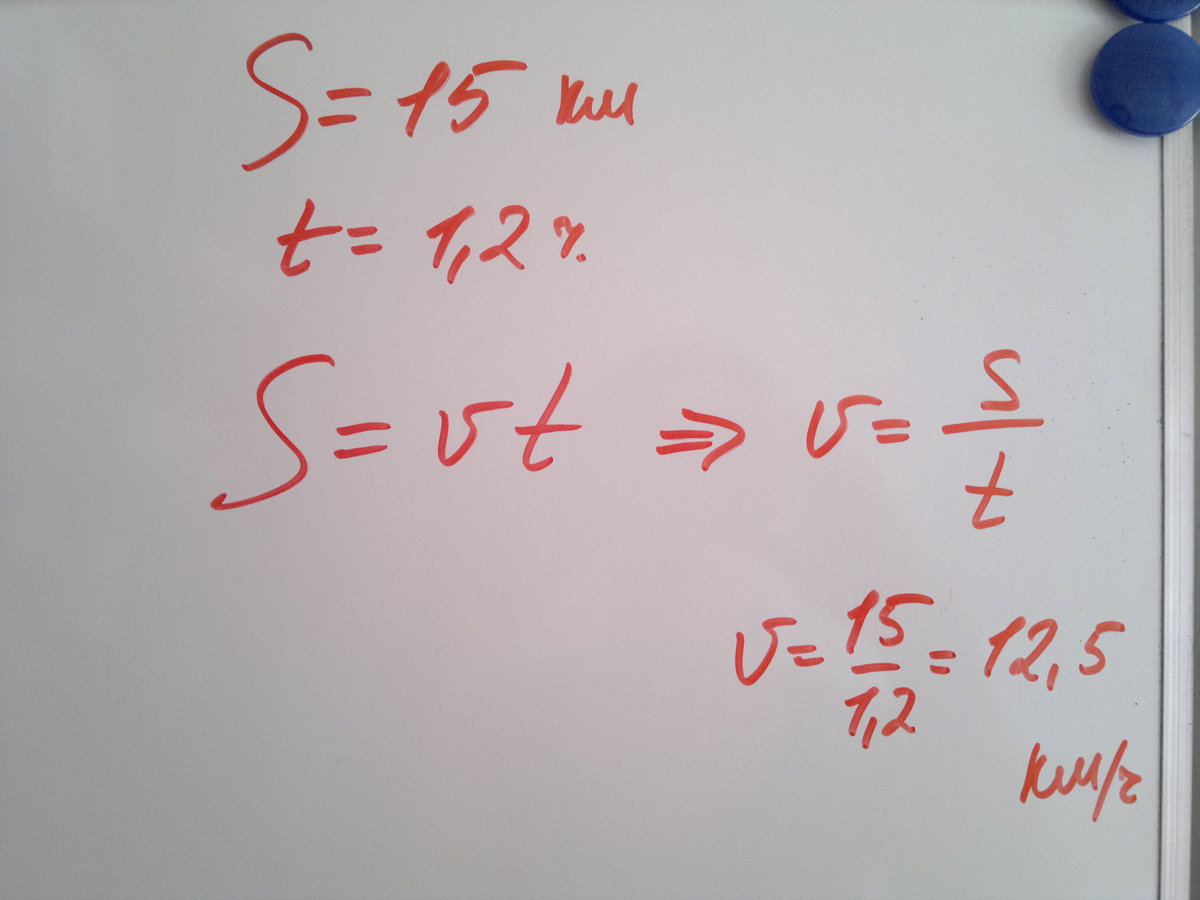 S = 15 км
t = 1,2 ч.
S = v t ⇒ v = s/t
v = 15/1,2 = 12,5
км/ч